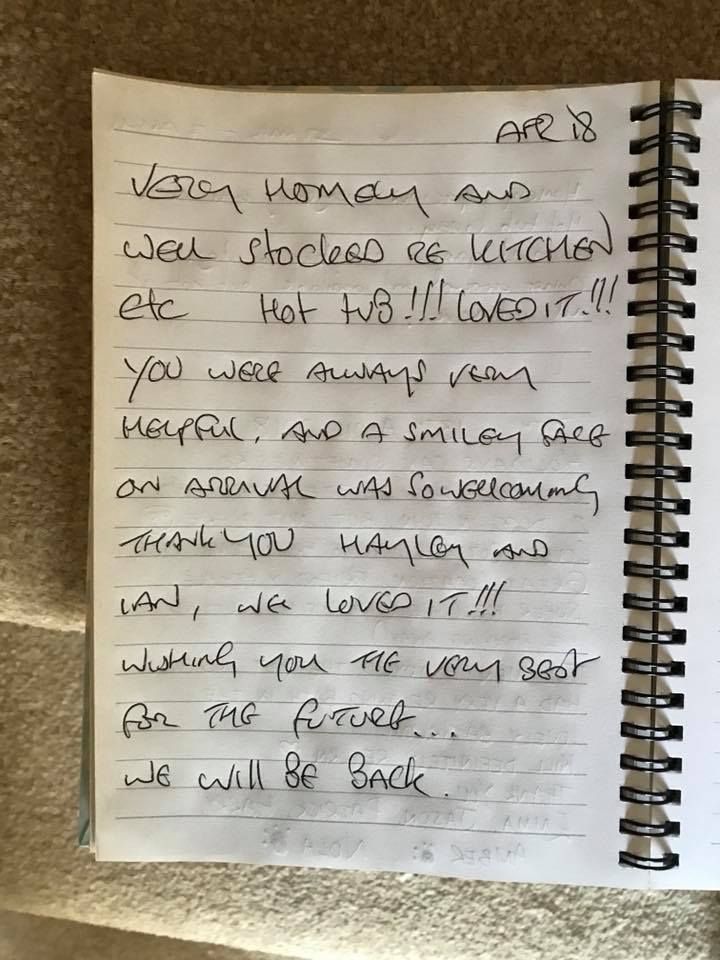 APR 18
VERY HOMELY AND
WELL STOCKED RE KITCHEN
etc HOT TUB!!! LOVED IT!!!
YOU WERE ALWAYS VERY
HELPFUL, AND A SMILEY FACE
ON ARRIVAL WAS SO WELCOMING
THANK YOU HAYLEY AND
IAN, WE LOVED IT!!!
WISHING YOU THE VERY BEST
FOR THE FUTURE...
WE WILL BE BACK.